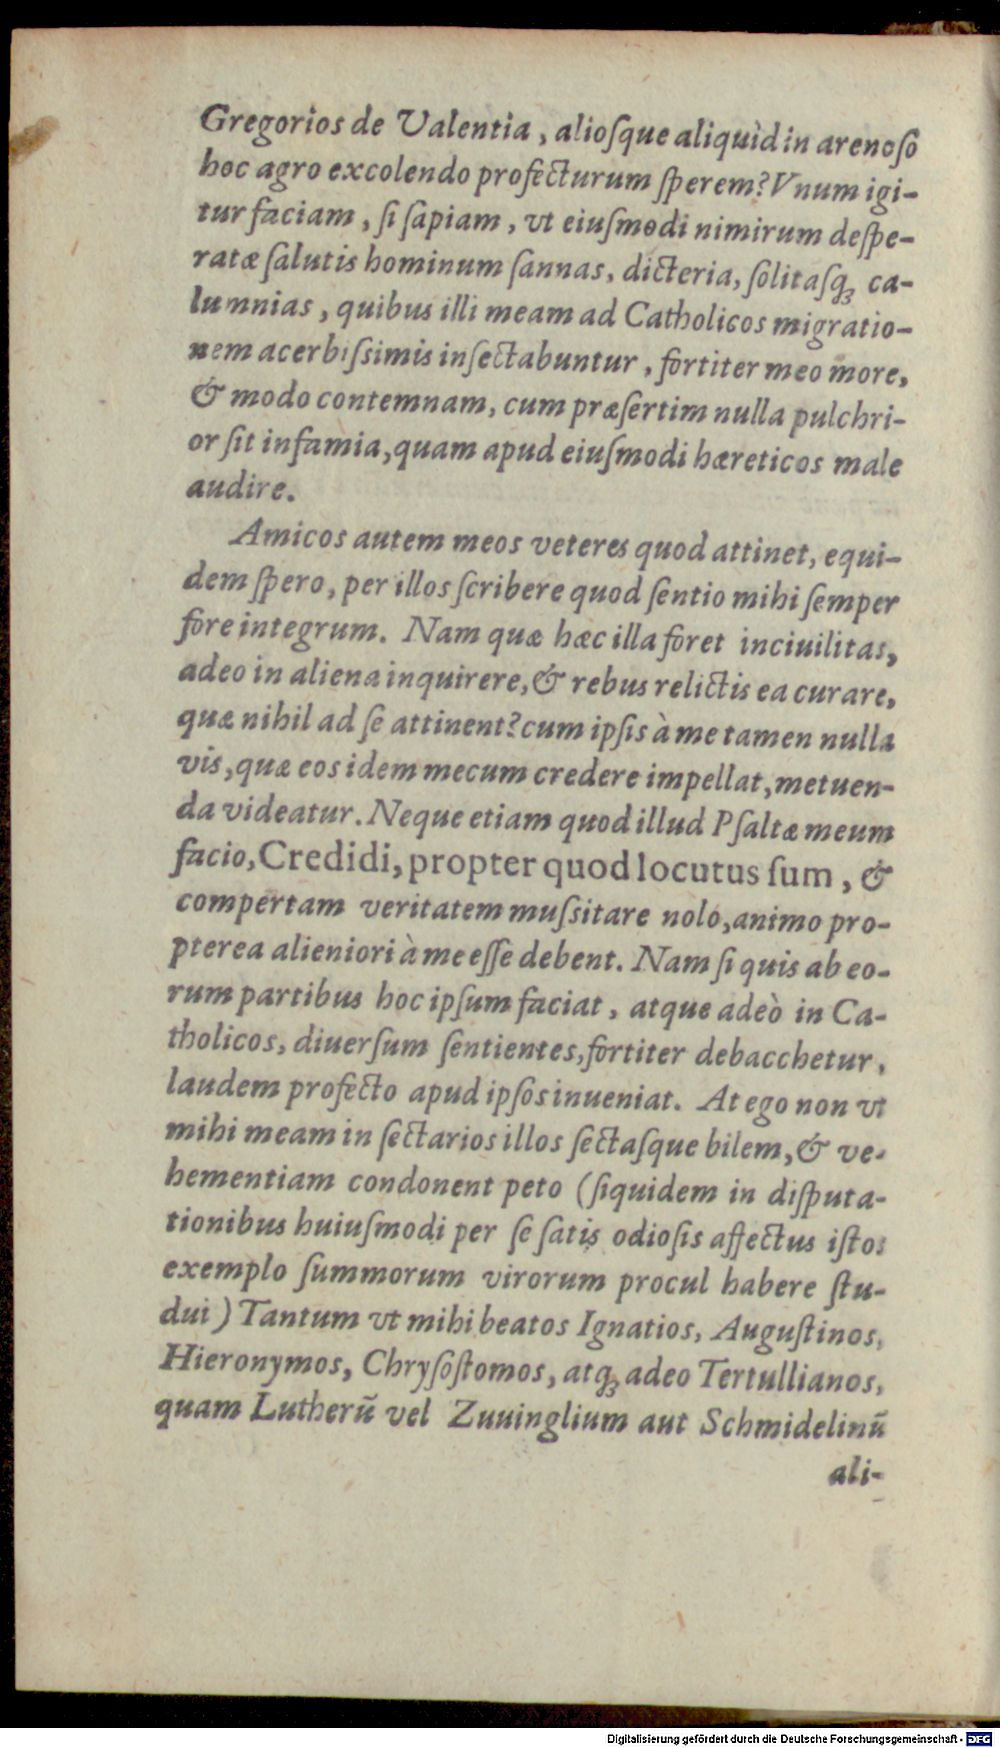 Gregorios de Valentia, alioſque aliquid in arenoſo
hoc agro excolendo profecturum ſperem? Vnum igi-
tur faciam, ſi ſapiam, vt eiuſmodi nimirum deſpe-
ratæ ſalutis hominum ſannas, dicteria, ſolitaſq; ca-
lumnias, quibus illi meam ad Catholicos migratio-
nem acerbiſsimis inſectabuntur, fortiter meo more,
& modo contemnam, cum præſertim nulla pulchri-
or ſit infamia, quam apud eiuſmodi hæreticos male
audire.
Amicos autem meos veteres quod attinet, equi-
dem ſpero, per illos ſcribere quod ſentio mihi ſemper
fore integrum. Nam quæ hæc illa foret inciuilitas,
adeo in aliena inquirere, & rebus relictis ea curare,
quæ nihil ad ſe attinent? cum ipſis à me tamen nulla
vis, quæ eos idem mecum credere impellat, metuen-
da videatur. Neque etiam quod illud Pſaltæ meum
facio, Credidi, propter quod locutus ſum, &
compertam veritatem muſsitare nolo, animo pro-
pterea alieniori à me eſſe debent. Nam ſi quis ab eo-
rum partibus hoc ipſum faciat, atque adeò in Ca-
tholicos, diuerſum ſentientes, fortiter debacchetur,
laudem profecto apud ipſos inueniat. At ego non vt
mihi meam in ſectarios illos ſectaſque bilem, & ve-
hementiam condonent peto (ſiquidem in diſputa-
tionibus huiuſmodi per ſe ſatis odioſis affectus iſtos
exemplo ſummorum virorum procul habere ſtu-
dui) Tantum vt mihi beatos Ignatios, Auguſtinos,
Hieronymos, Chryſoſtomos, atq; adeo Tertullianos,
quam Lutherū vel Zuuinglium aut Schmidelinū
ali-
Digitalisierung gefördert durch die Deutsche Forschungsgemeinschaft - DFG